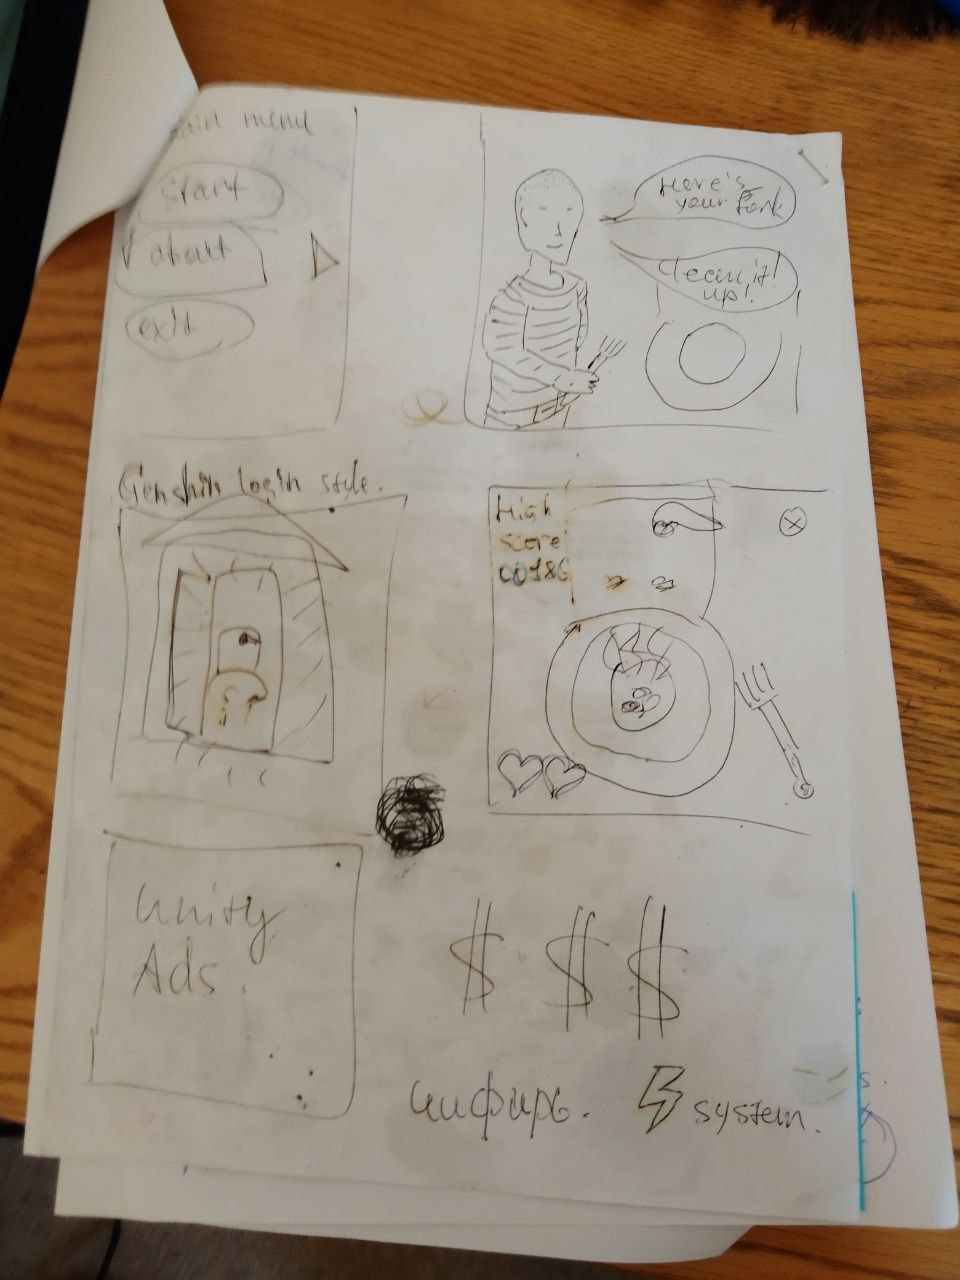 main menu
start
about
exit
Here's
your Fork
Clean it!
up!
Genshin login style.
High
score
00186
Unity
Ads.
$ $ $
system.